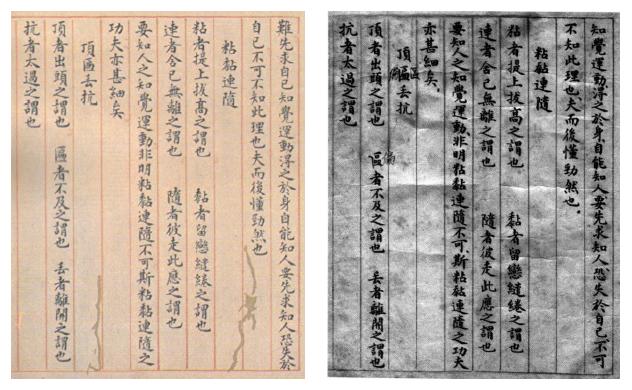 難先求自己知覺運動得之於身自能知人要先求知人恐失於
自己不可不知此理也夫而後懂勁然也
粘黏連隨
粘者提上拔高之謂也 黏者留戀繾綣之謂也
連者舍己無離之謂也 隨者彼走此應之謂也
要知人之知覺運動非明粘黏連隨不可斯粘黏連隨之
功夫亦甚細矣
頂區丟抗
頂者出頭之謂也 區者不及之謂也 丟者離開之謂也
抗者太過之謂也
知覺運動得之於身自能知人要先求知人恐失於自己不可
不知此理也夫而後懂勁然也。
粘黏連隨
粘者提上拔高之謂也 黏者留戀繾綣之謂也
連者舍己無離之謂也 隨者彼走此應之謂也
要知人之知覺運動非明粘黏連隨不可斯粘黏連隨之功夫
亦甚細矣、
頂區丟抗
頂者出頭之謂也 區者不及之謂也 丟者離開之謂也
抗者太過之謂也